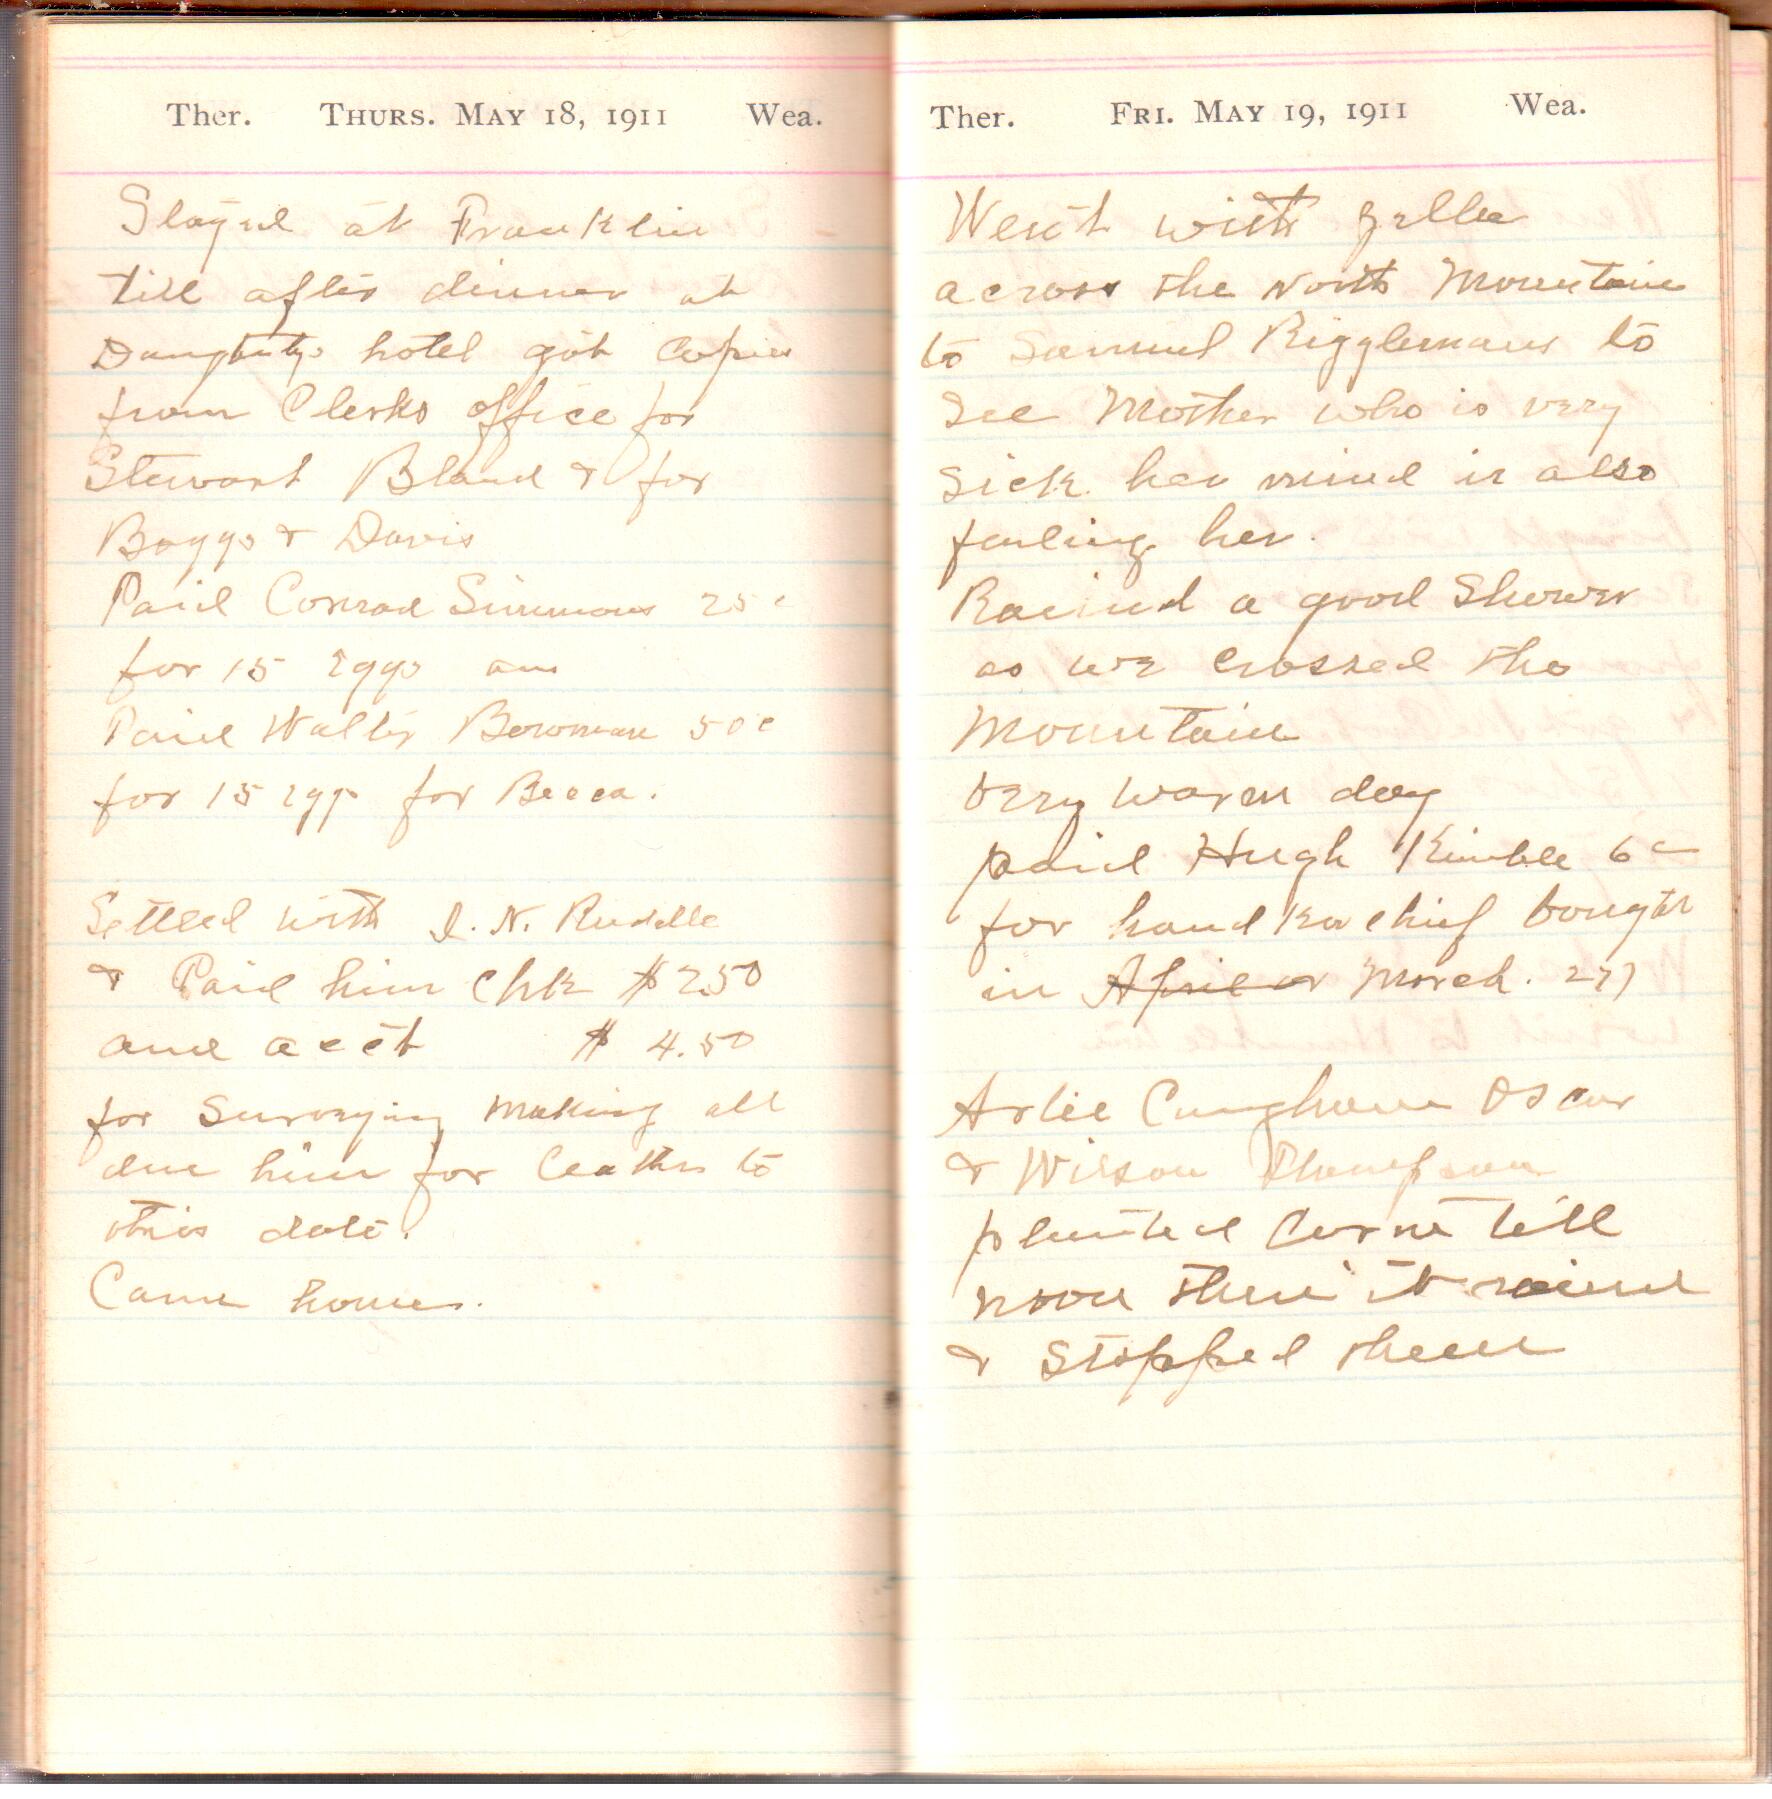 Ther. THURS. MAY 18, 1911 Wea.
Stayed at Franklin
till after dinner at
hotel got copies
from Clerks office for
Stewart Bland & for
Boggs & Davis
Paid Conrad Simmons 25c
for 15 eggs
Paid Walter Bowman 50c
for 15 eggs for Becca.
Settled with I. N. Ruddle
& Paid him chk $2.50
and acct $ 4.50
for surveying making all
due him for to
this date.
Came home.
Ther. FRI. MAY 19, 1911 Wea.
Went with Zella
across the North Mountain
to Samuel Rigglemans to
see Mother who is very
sick. her mind is also
failing her.
Rained a good shower
as we crossed the
Mountain
very warm day
paid Hugh Kimble 6c
for handkachief bought
in April or March. 27)
Arlie Oscar
& Wilson Thompson
planted corn till
noon then it raind
& stopped them